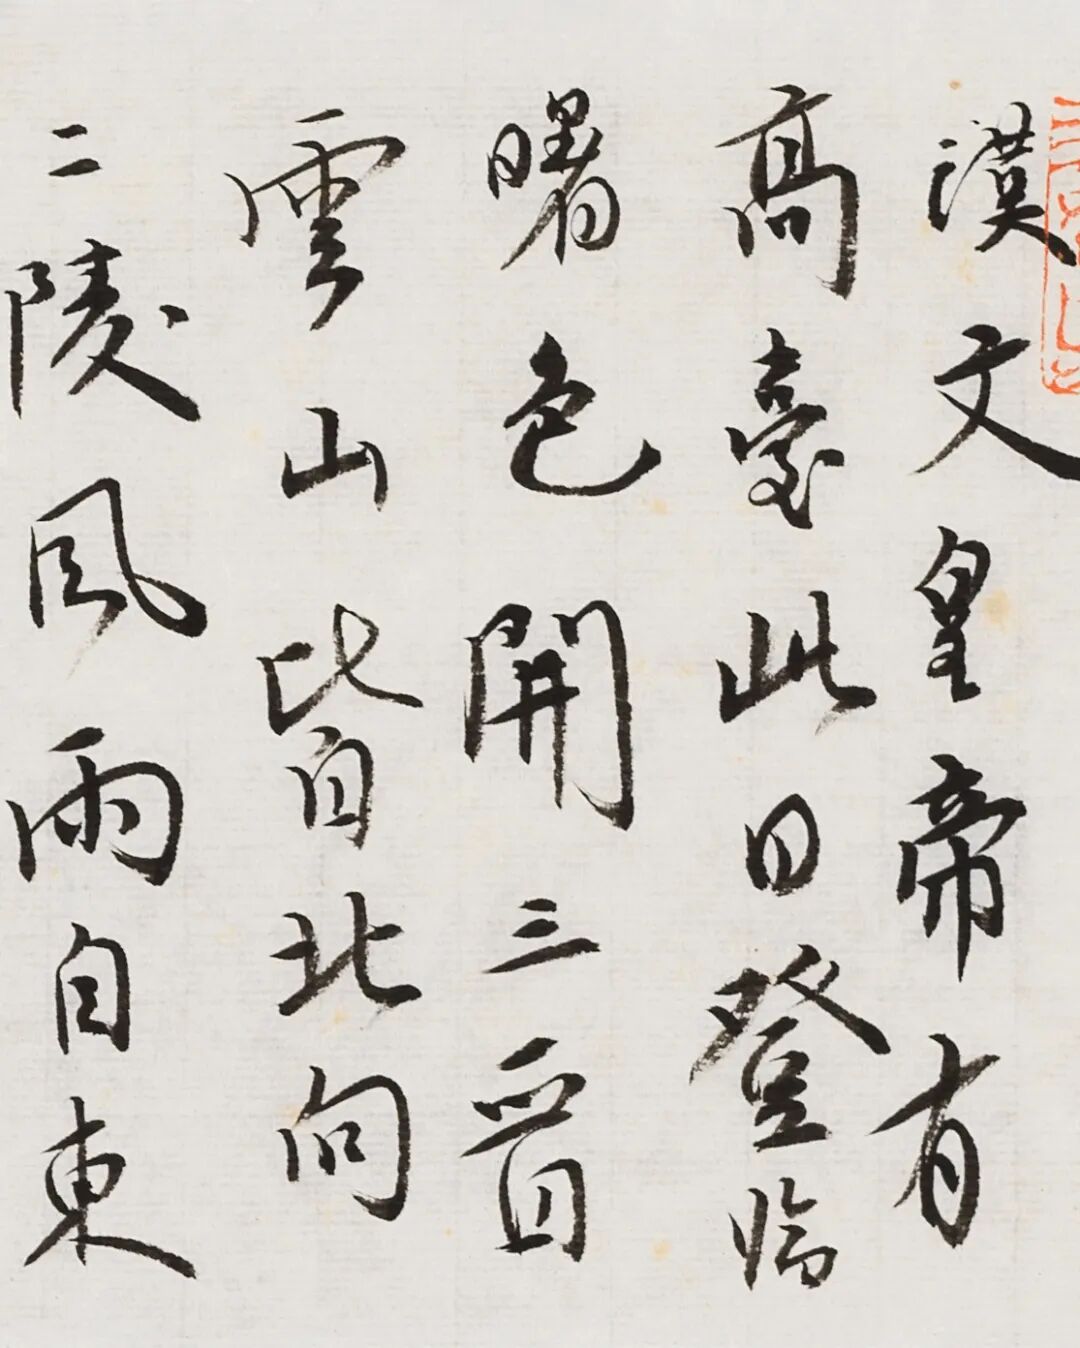 漢文皇帝有
高臺此日登臨
曙色開三晉
雲山皆北向
二陵風雨自東